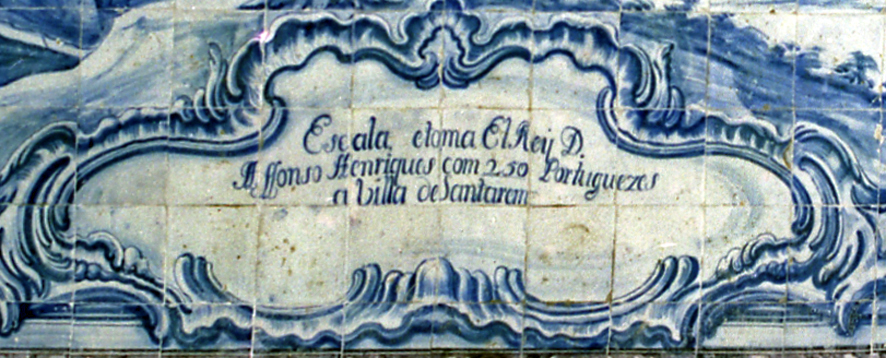 Escala, etoma El Reÿ D.
Affonso Henriques com 250 Portuguezes
a Villa de Santarem